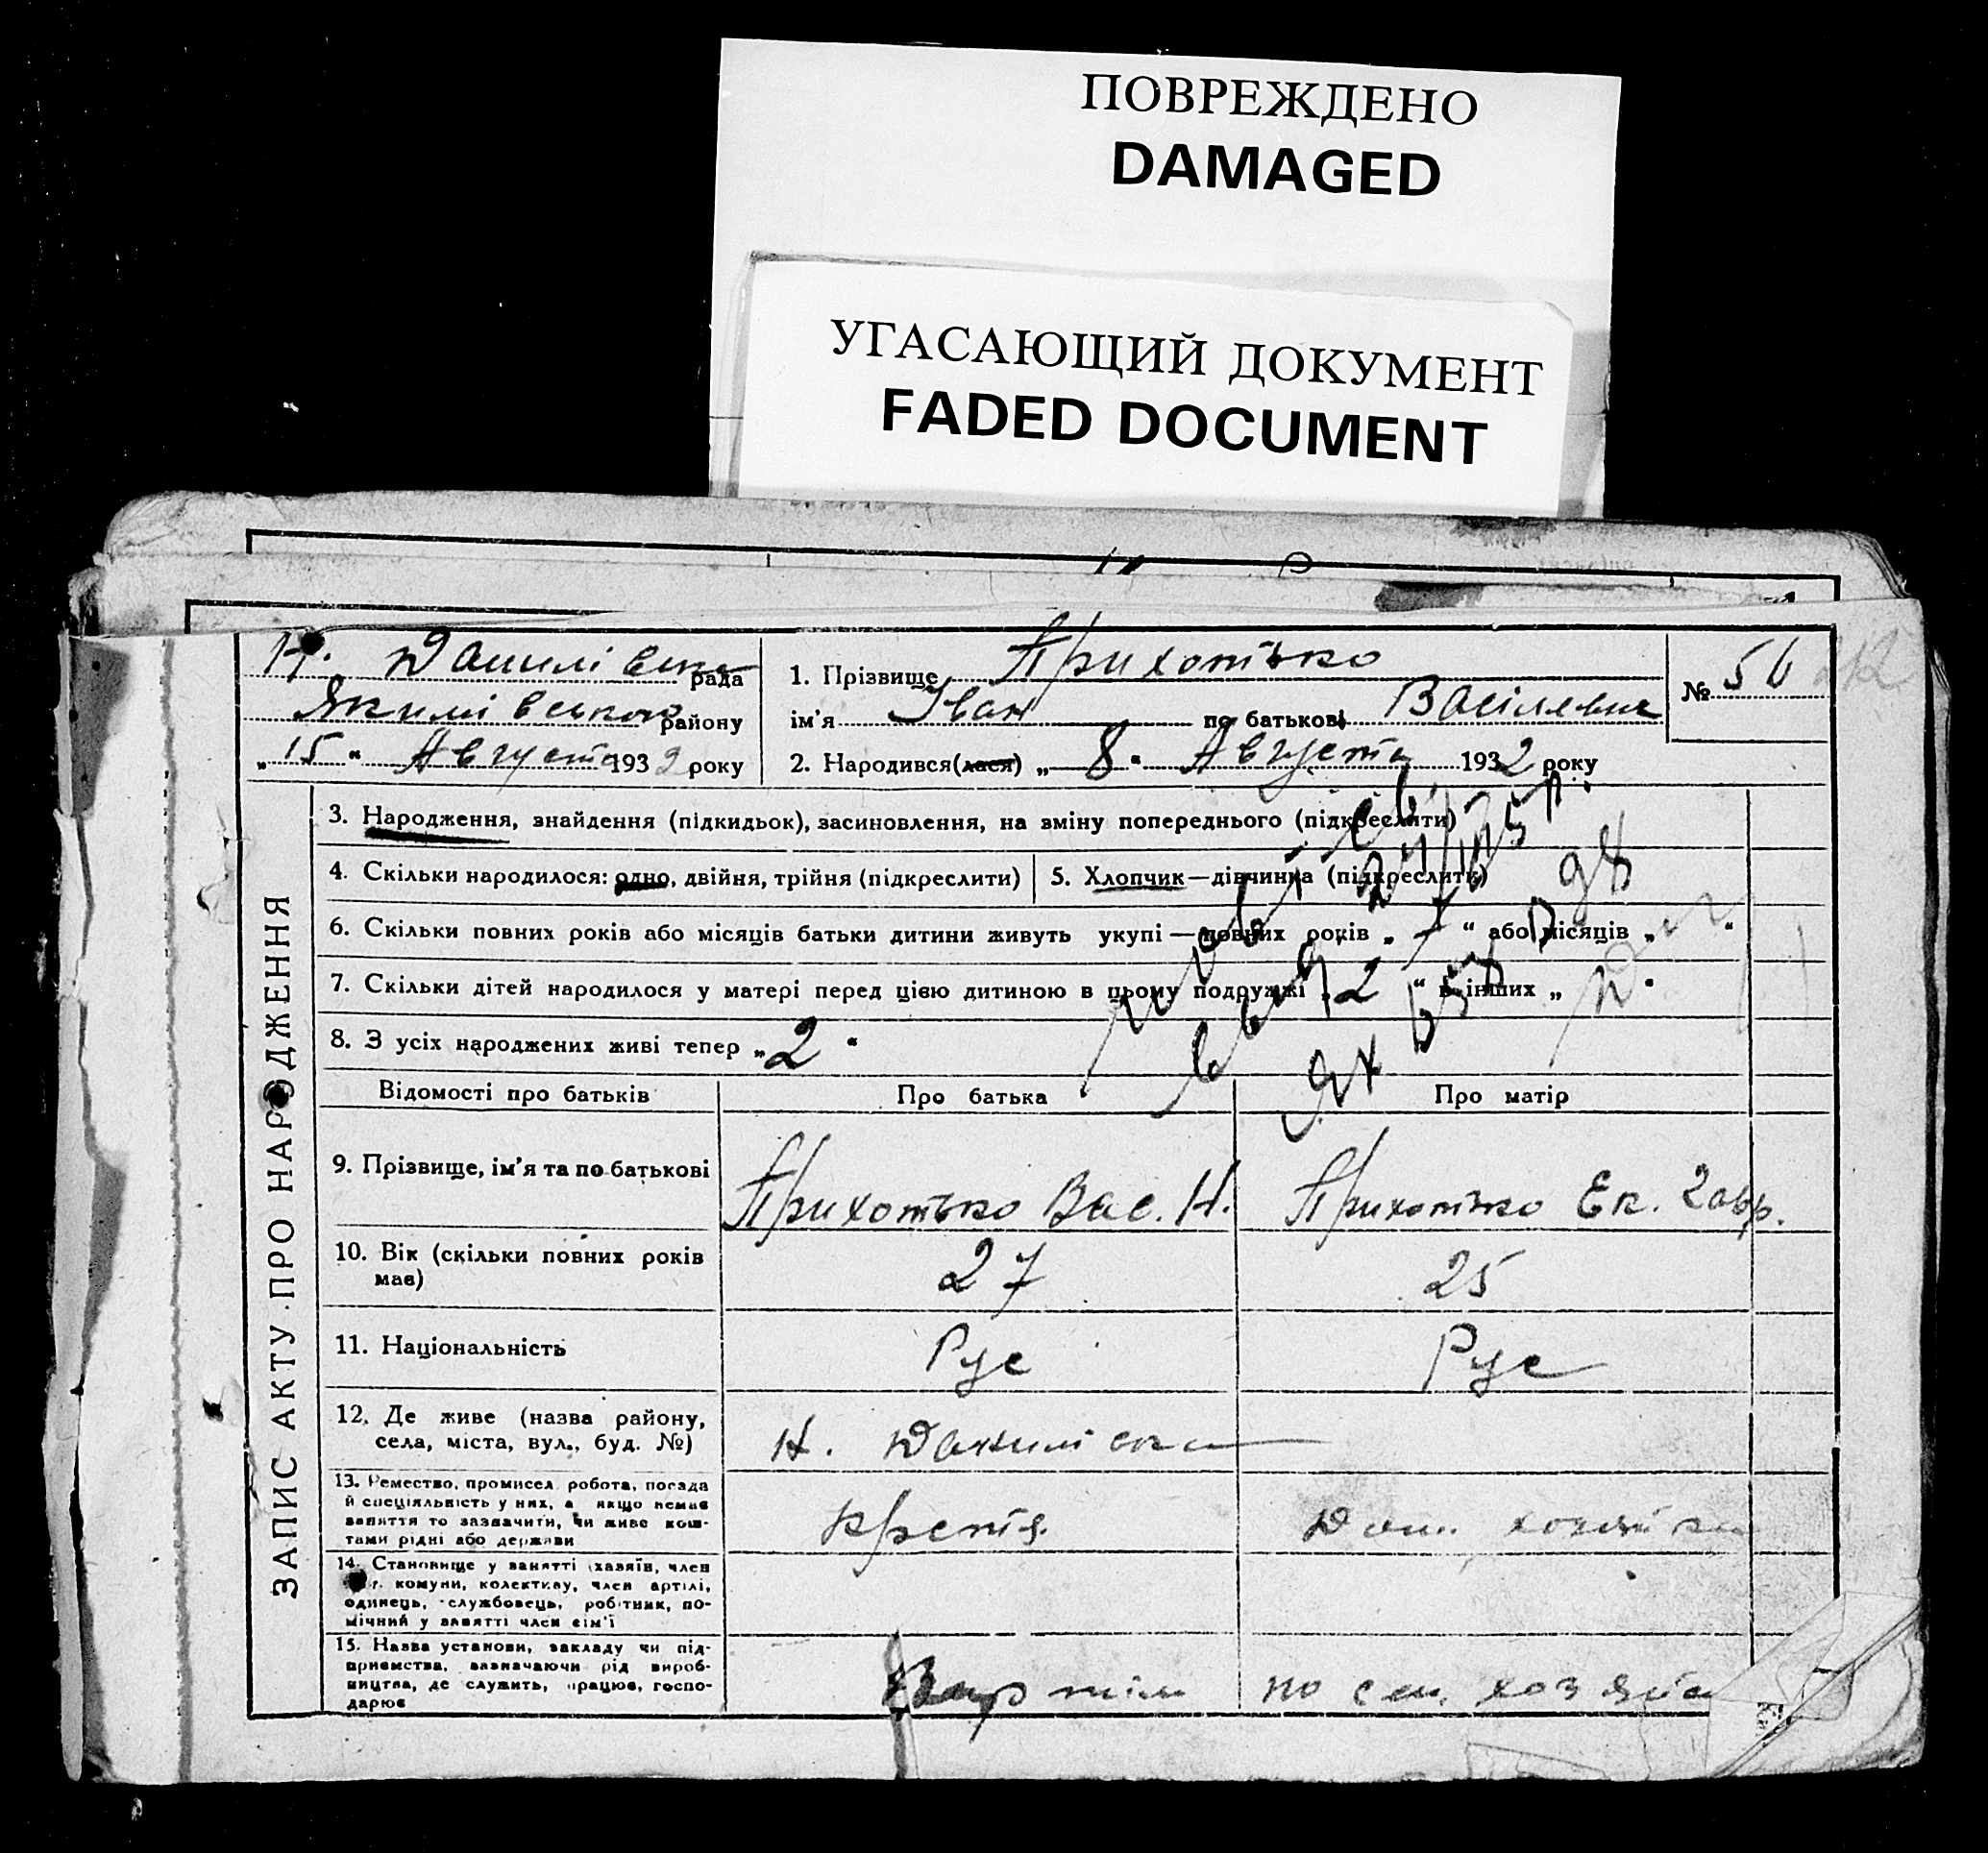 ПОВРЕЖДЕНО
DAMAGED
УГАСАЮЩИЙ ДОКУМЕНТ
FADED DOCUMENT
Н. Данилівська рада
Якимівського району
„15“ Августа 1932 року
1. Прізвище Прихотько
ім'я Іван по батькові Васілевич
2. Народився(лася) „8“ Августа 1932 року
№ 56
ЗАПИС АКТУ ПРО НАРОДЖЕННЯ
3. Народження, знайдення (підкидьок), засиновлення, на зміну попереднього (підкреслити)
4. Скільки народилося: одно, двійня, трійня (підкреслити)
5. Хлопчик—дівчинка (підкреслити)
6. Скільки повних років або місяців батьки дитини живуть укупі — повних років „7“ або місяців „ “
7. Скільки дітей народилося у матері перед цією дитиною в цьому подружжі „2“ в інших „ “
8. З усіх народжених живі тепер „2“
Відомості про батьків Про батька Про матір
9. Прізвище, ім'я та по батькові Прихотько Вас. Н. Прихотько Ек. Гавр.
10. Вік (скільки повних років має) 27 25
11. Національність Рус Рус
12. Де живе (назва району, села, міста, вул., буд. №) Н. Данилівка
13. Ремество, промисел, робота, посада
й спеціяльність у них, а якщо немає
заняття то зазначити, чи живе кош-
тами рідні або держави
Дом. хозяйка
14. Становище у занятті (хазяїн, член
комуни, колективу, член артілі,
одинець, службовець, робітник, по-
мічний у занятті член сім'ї
15. Назва установи, закладу чи під-
приємства, зазначаючи рід вироб-
ництва, де служить, працює, госпо-
дарює
по сел. хозяйс